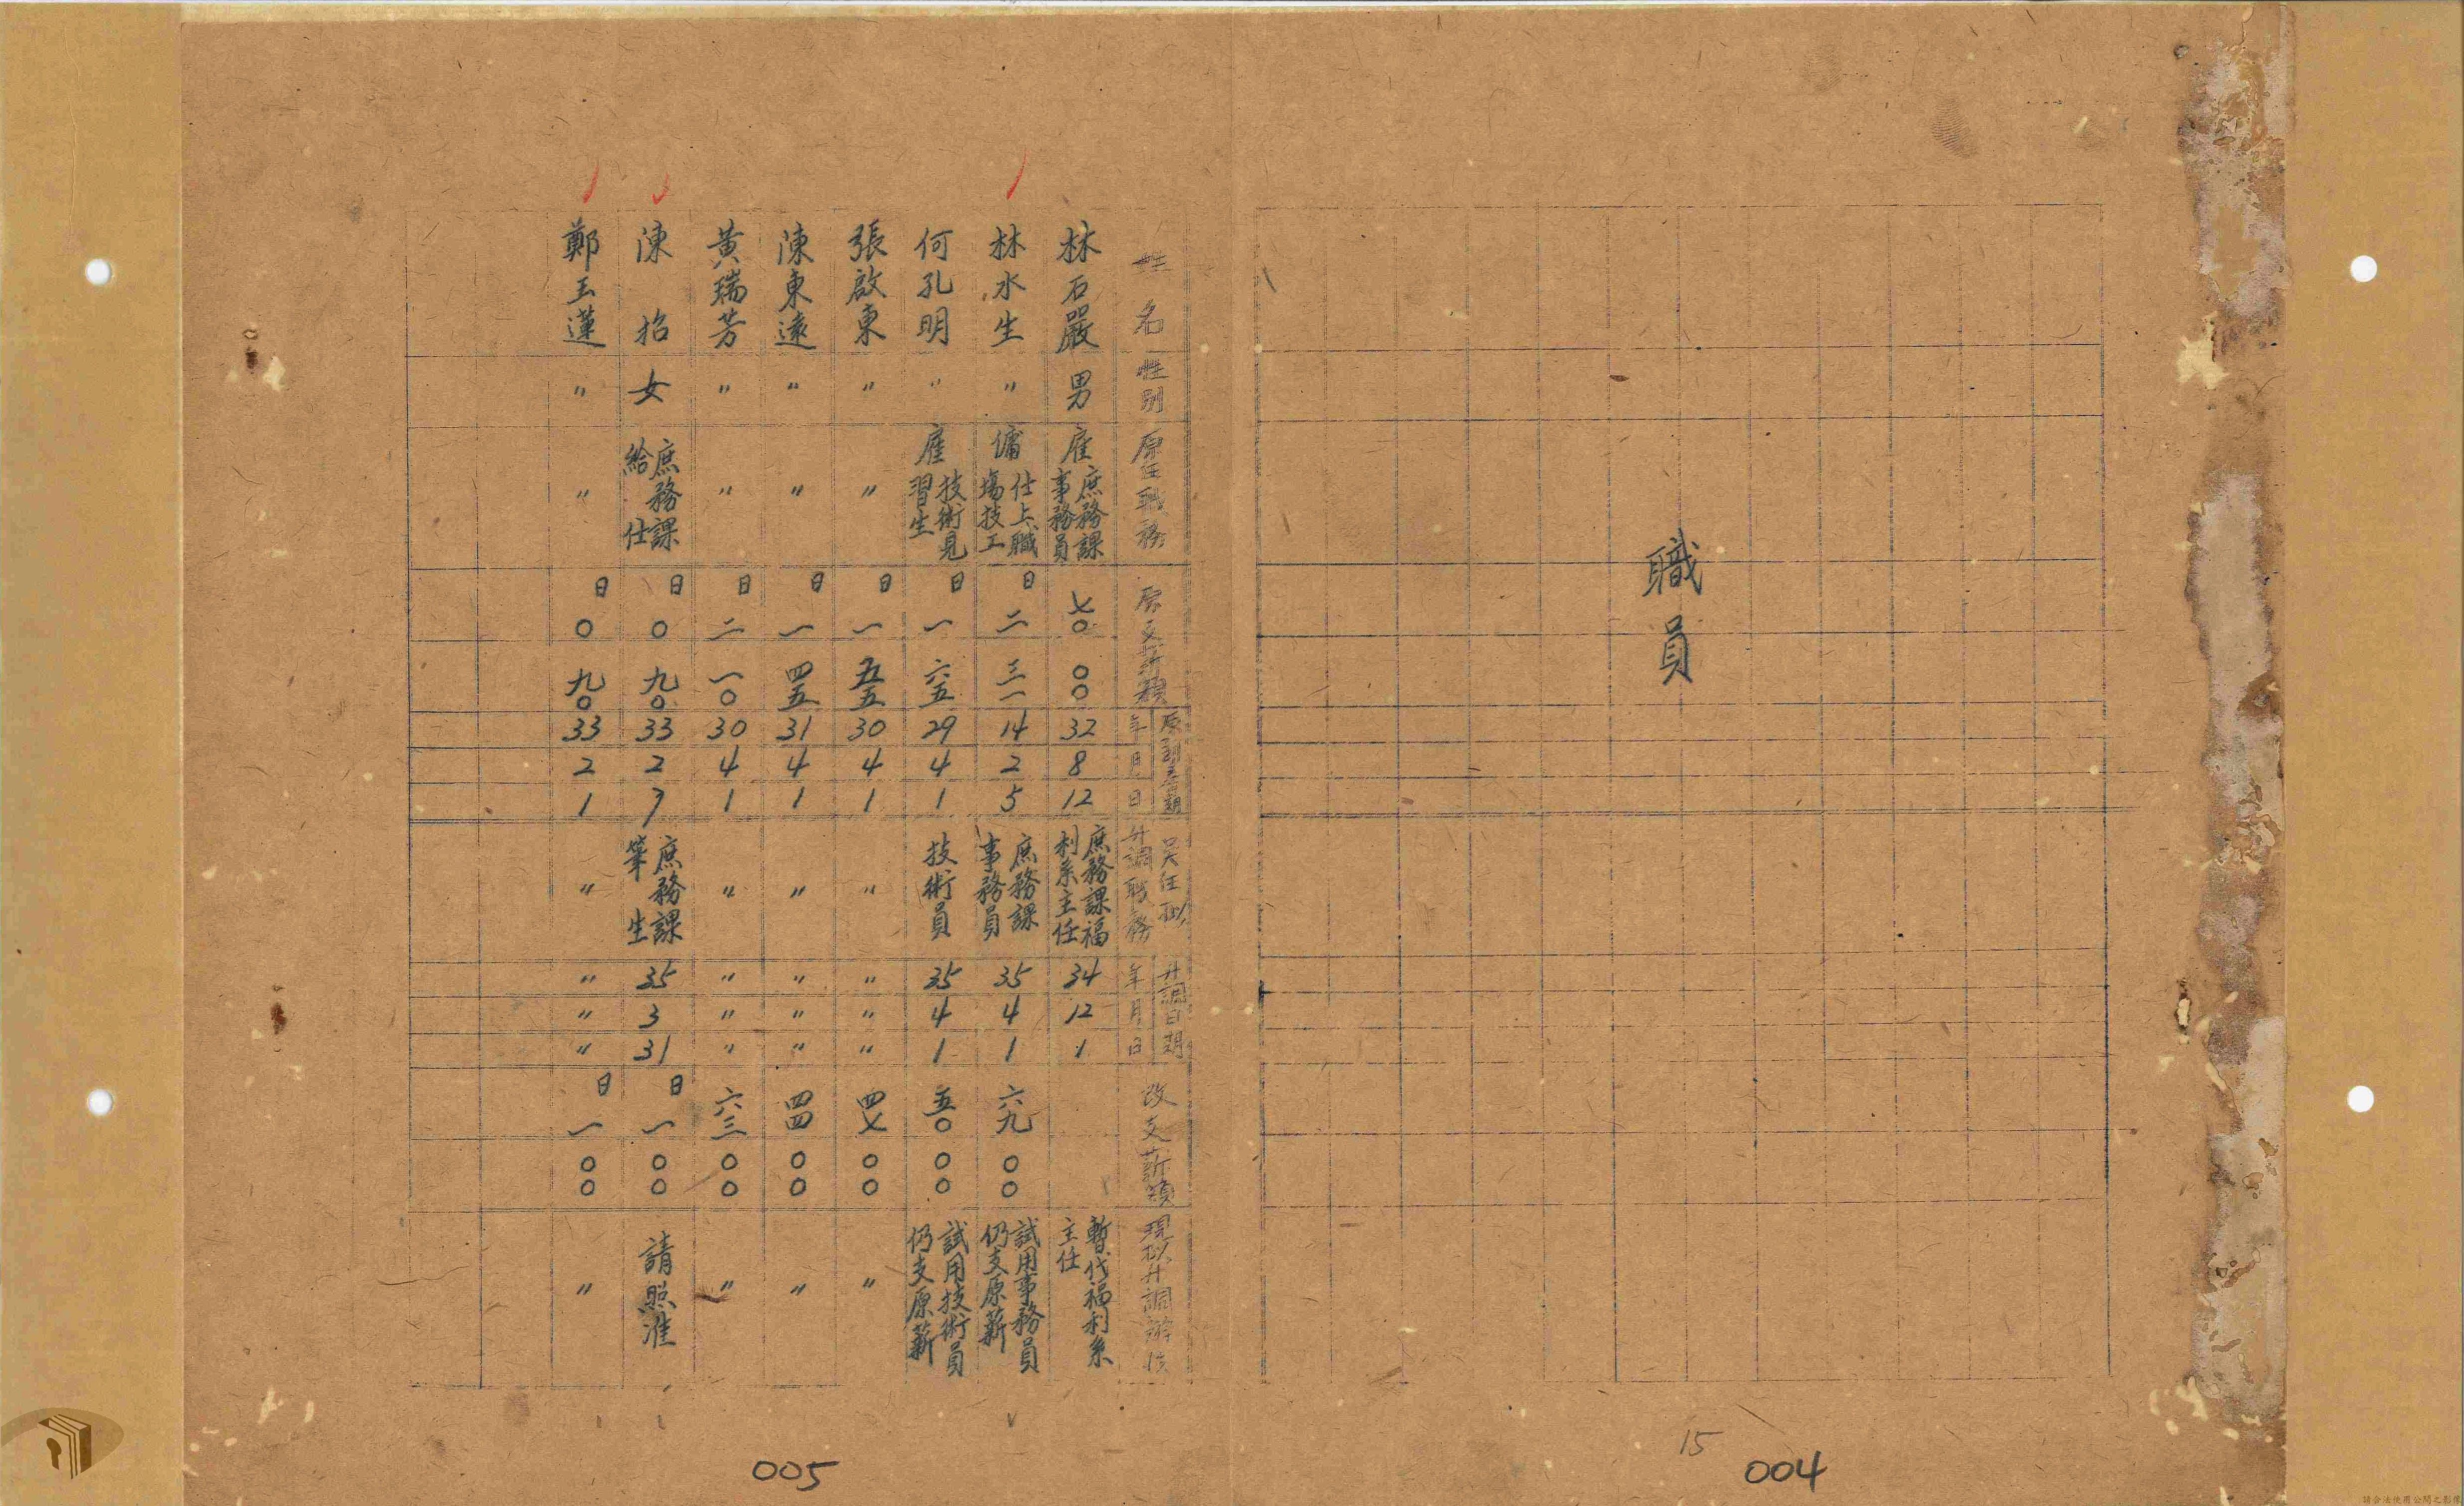 職員
15
004
姓名 性別 原任職務 原支薪額 原到差期 年月日 吳任擬升調職務 升調日期 年月日 改支薪額 現擬升調辦法
林石嚴 男 雇 庶務課事務員 七〇 〇〇 32 8 12 庶務課福利系主任 34 12 1 暫代福利系主任
林水生 〃 傭 仕上職場技工 日二 三一 14 2 5 庶務課事務員 35 4 1 六九 〇〇 試用事務員仍支原薪
何孔明 〃 雇 技術見習生 日一 六五 29 4 1 技術員 35 4 1 五〇 〇〇 試用技術員仍支原薪
張啟東 〃 〃 日一 五五 30 4 1 〃 〃 〃 〃 四七 〇〇 〃
陳東遠 〃 〃 日一 四五 31 4 1 〃 〃 〃 〃 四四 〇〇 〃
黃瑞芳 〃 〃 日二 一〇 30 4 1 〃 〃 〃 〃 六三 〇〇 〃
陳招 女 庶務課給仕 日〇 九〇 33 2 7 庶務課筆生 35 3 31 日一 〇〇 請照准
鄭玉蓮 〃 〃 日〇 九〇 33 2 1 〃 〃 〃 〃 日一 〇〇 〃
005
請合法使用公開之影像